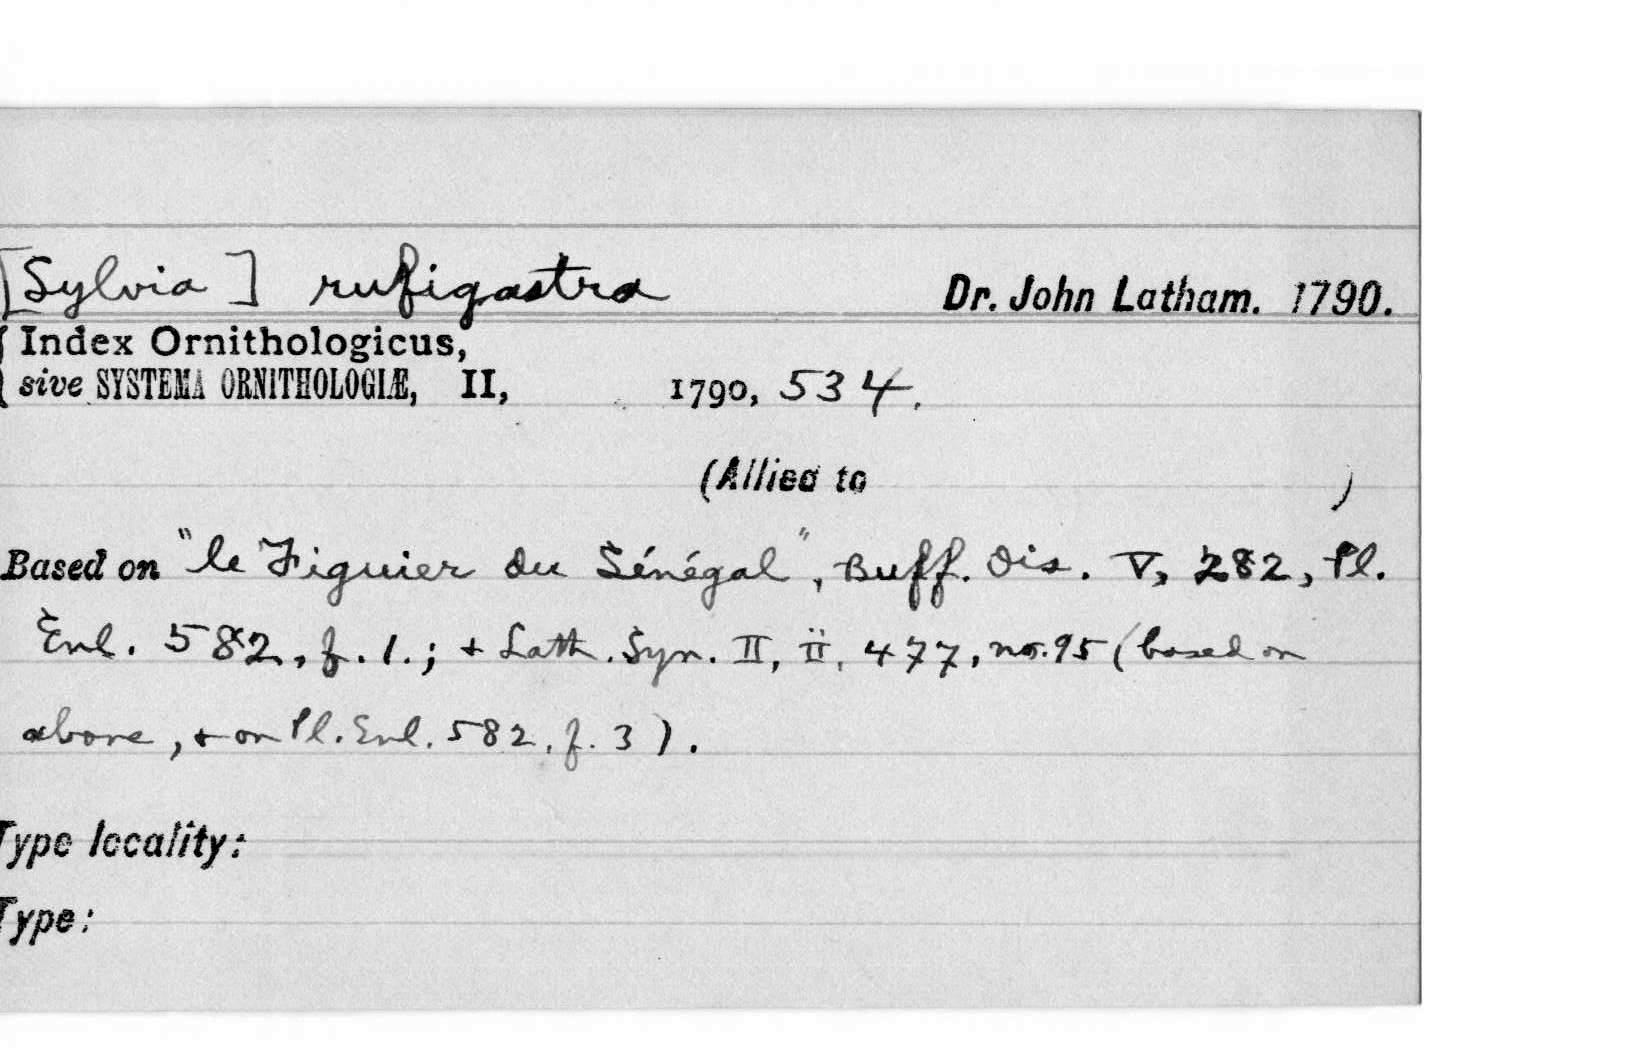 [Sylvia] rufigastra Dr. John Latham. 1790.
Index Ornithologicus,
sive SYSTEMA ORNITHOLOGIÆ, II, 1790, 534.
(Allied to )
Based on "le Figuier du Sénégal", Buff. Ois. V, 282, Pl.
Enl. 582, f. 1.; + Lath. Syn. II, ii, 477, no. 95 (based on
above, + on Pl. Enl. 582, f. 3).
Type locality:
Type: